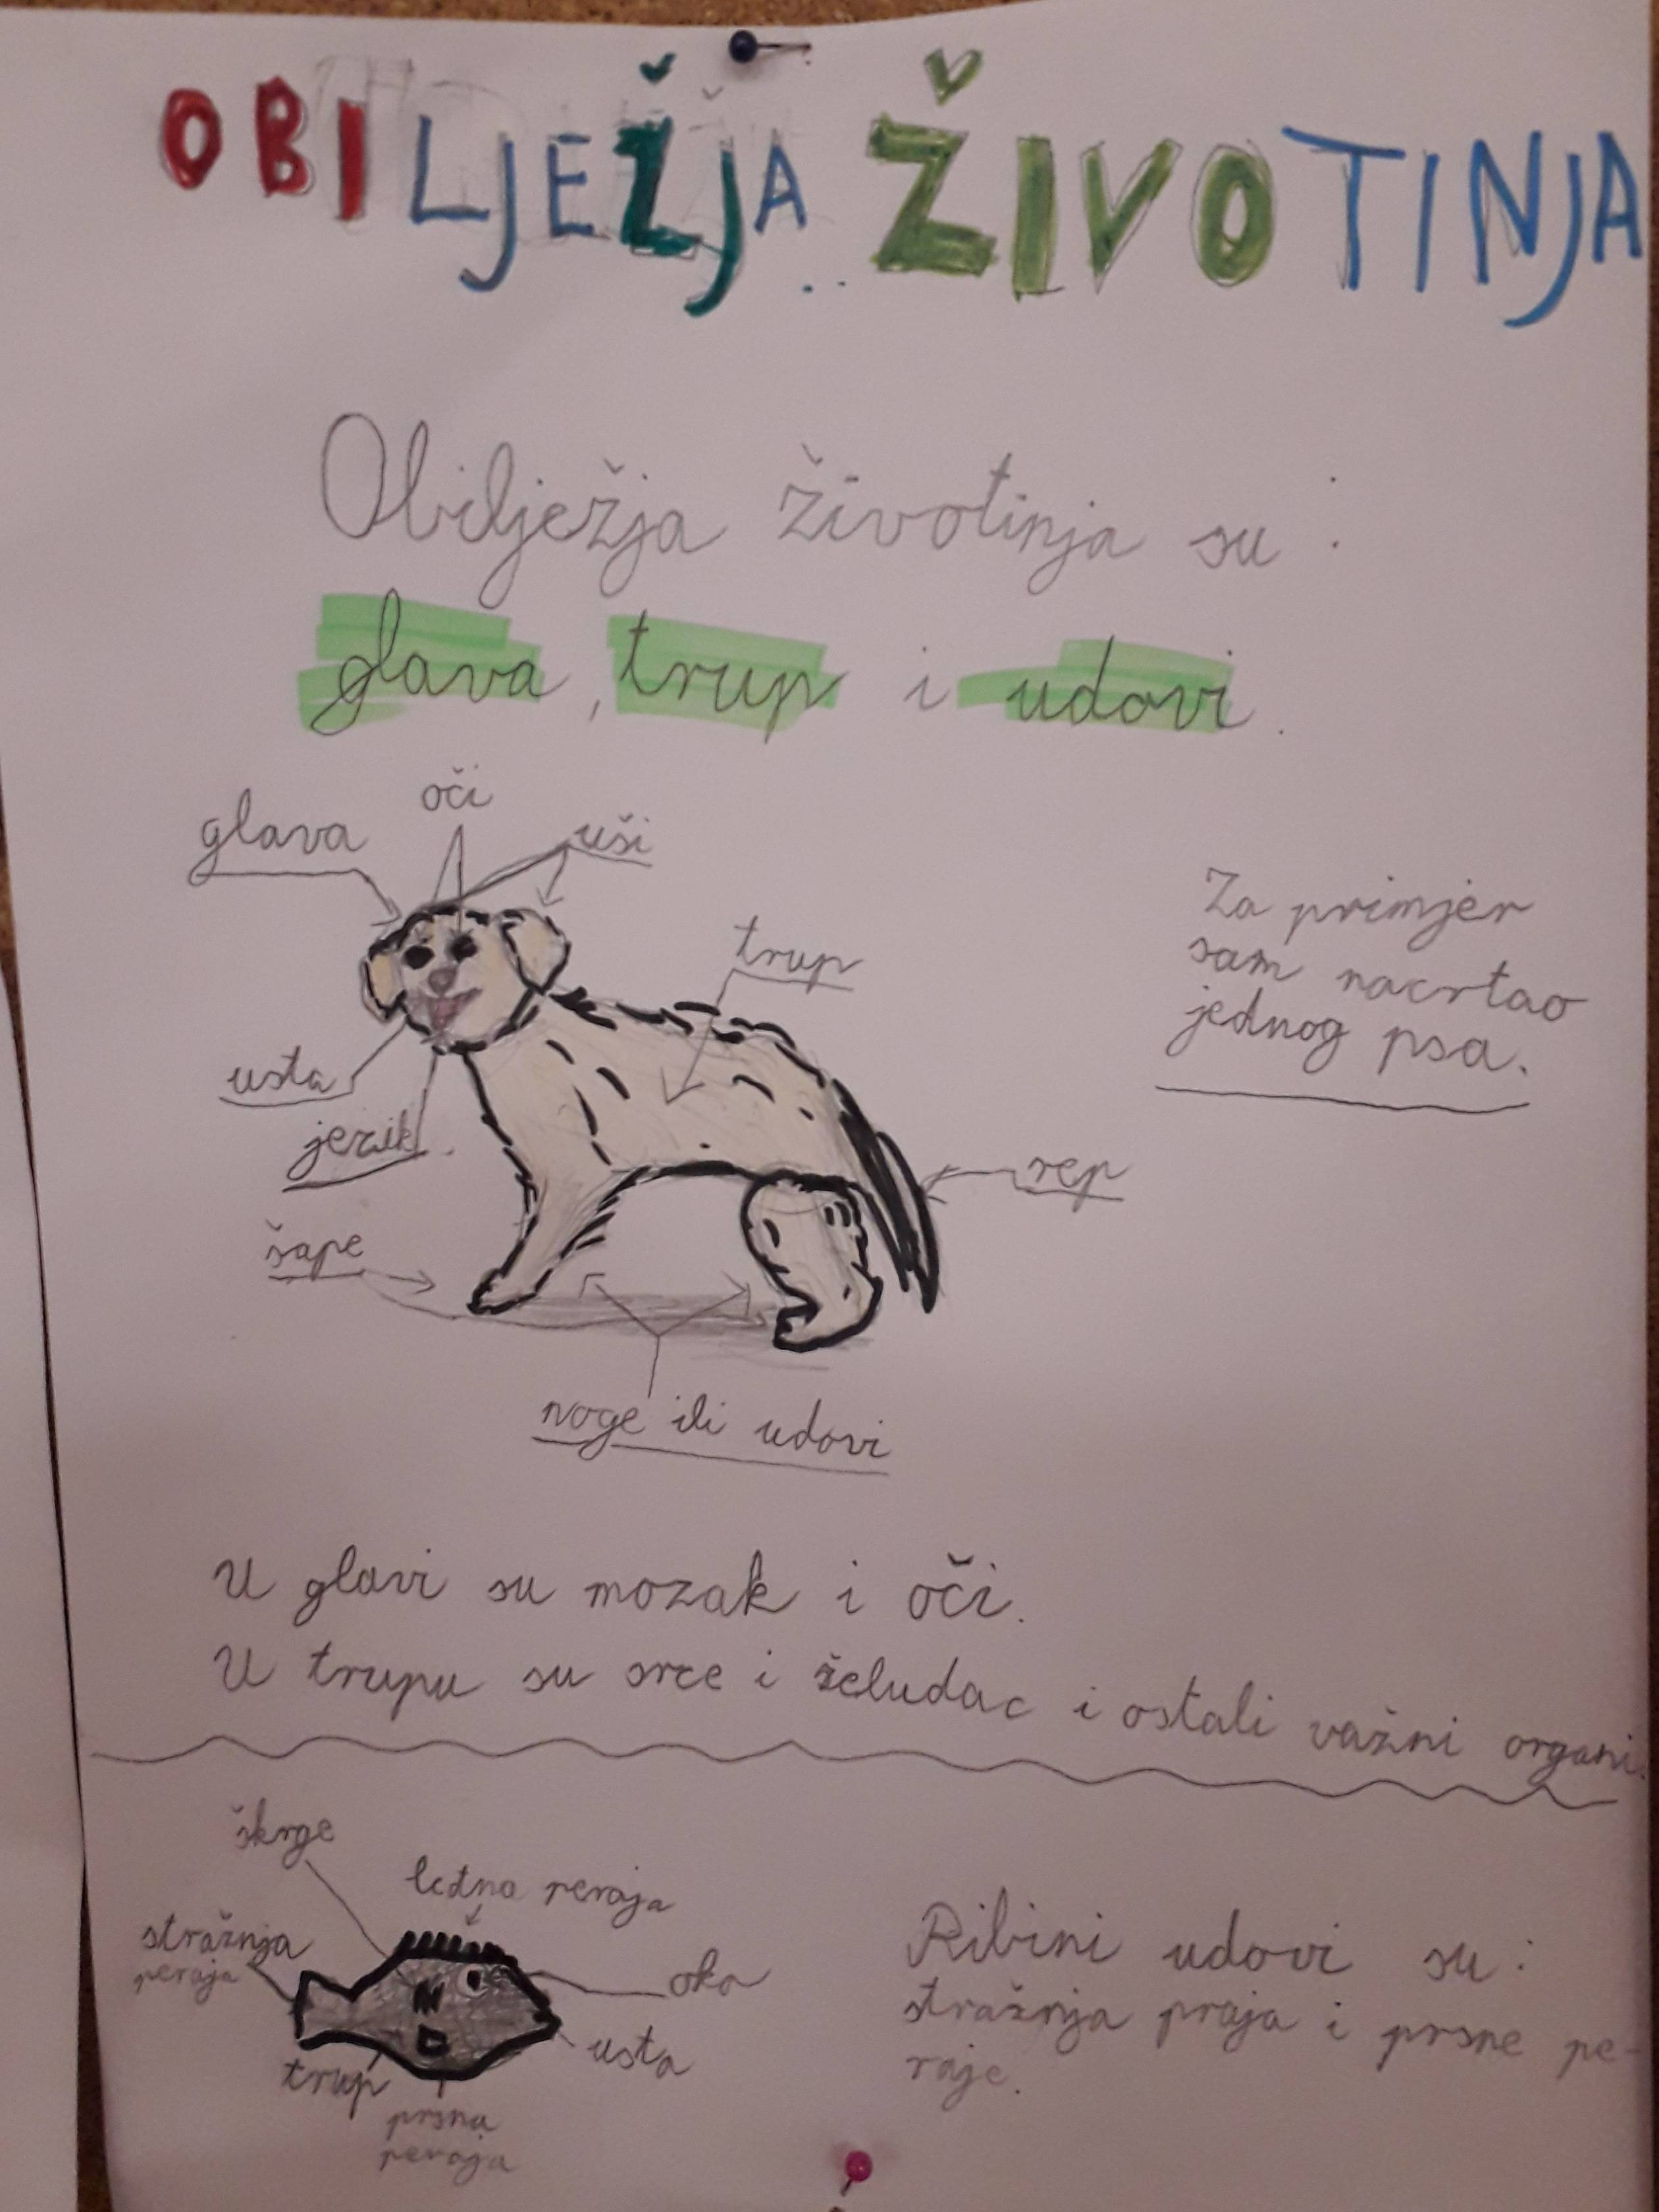 OBILJEŽJA ŽIVOTINJA
Obilježja životinja su :
glava, trup i udovi.
oči
glava
uši
trup
Za primjer
sam nacrtao
jednog psa.
usta
jezik.
rep
šape
noge ili udovi
U glavi su mozak i oči.
U trupu su srce i želudac i ostali važni organi.
škrge
leđna peraja
stražnja
peraja
oko
usta
trup
prsna
peraja
Ribini udovi su :
stražnja praja i prsne pe-
raje.